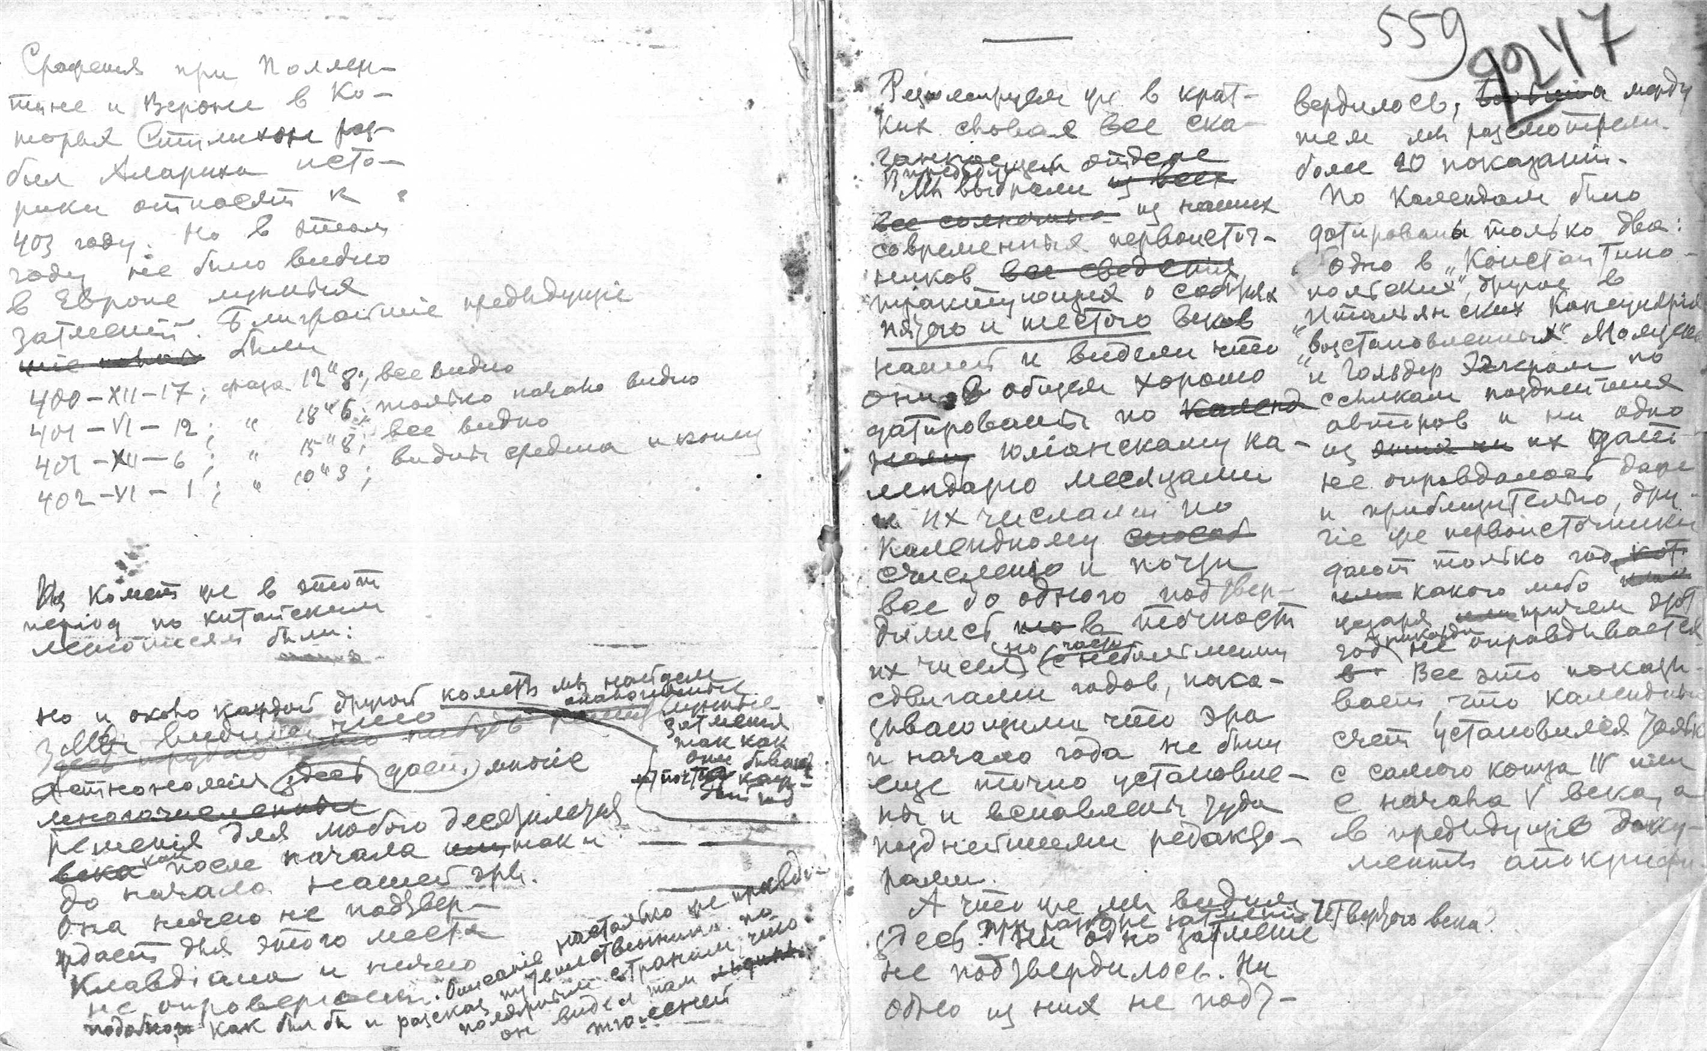 Сражения при Поллен-
тине и Вероне в ко-
торых Стилихон раз-
бил Алариха исто-
рики относят к
403 году. Но в этом
году не было видно
в Европе лунных
затмений. Ближайшие предыдущие
были
400-XII-17; фаза 12"8; все видно
401-VI-12; " 18"6; только начало видно
401-XII-6; " 15"8; все видно
402-VI-1; " 10"3; видны средина и конец
Из комет же в этот
период по китайским
летописям были:
Но и около каждой другой кометы мы найдем
аналогичные
лунные
затмения
так как
они бывают
почти каж-
дый год
Мы видим что
Астрономия здесь дает многие
многочисленные
решения для любого десятилетия
века как после начала так и
до начала нашей эры.
Она ничего не подтвер-
ждает для этого места
Клавдіана и ничего
не опровергает. Описаніе настолько же правди-
подобно как был бы и рассказ путешественника по
полярным странам, что
он видел там льдины
тюленей
559
92 47
Резюмируем же в крат-
ких словах все ска-
занное
в предыдущем отделе
Мы выбрали из всех
все солнечные из наших
современных первоисточ-
ников все сведения
трактующих о событиях
пятого и шестого веков
нашей и видели что
они в общем хорошо
датированы по календ
юлианскому ка-
лендарю месяцами
и их числами по
календному способ
счислению и почти
все до одного подтвер-
дились в точности
их чисел, но часто
с небольшими
сдвигами годов, пока-
зывающими что эра
и начало года не были
еще точно установле-
ны и вставлены туда
позднейшими редакто-
рами.
А что же мы видим
здесь при разборе затмений Четвертого века?
Ни одно затмение
не подтвердилось. Ни
одно из них не подт-
вердилось, а между
тем мы разсмотрели
более 20 показаний.
По Календам было
датировано только два:
Одно в „Константино-
польских", другое в
„Итальянских Консуляріях
„возстановленных" Момзеном
и Гольдер Эггером по
ссылкам позднейших
авторов и ни одно
из них дат
не оправдалось даже
и приблизительно, дру-
гіе же первоисточники
дают только год
какого либо
цезаря причем этот
год никогда не оправдывается
Все это показы-
вает, что календный
счет установился
с самого конца IV или
с начала V века, а
в предыдущіе доку-
менты апокрифы